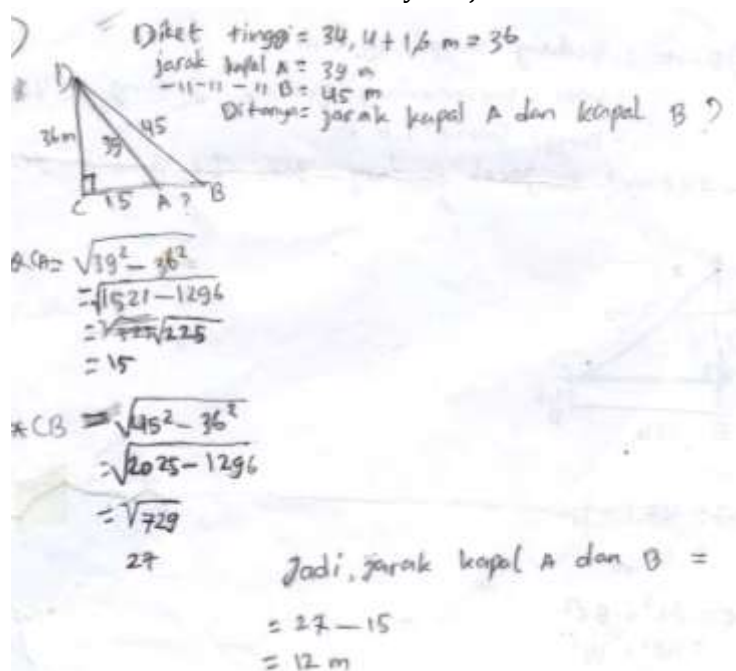 Diket tinggi = 34,4 + 1,6 m = 36
jarak kapal A = 39 m
-"-"-" B = 45 m
Ditanya = jarak kapal A dan kapal B ?
D
36m
39
45
C 15 A ? B
CA = √39² - 36²
= √1521 - 1296
= √225
= 15
* CB = √45² - 36²
= √2025 - 1296
= √729
27
Jadi, jarak kapal A dan B =
= 27 - 15
= 12 m